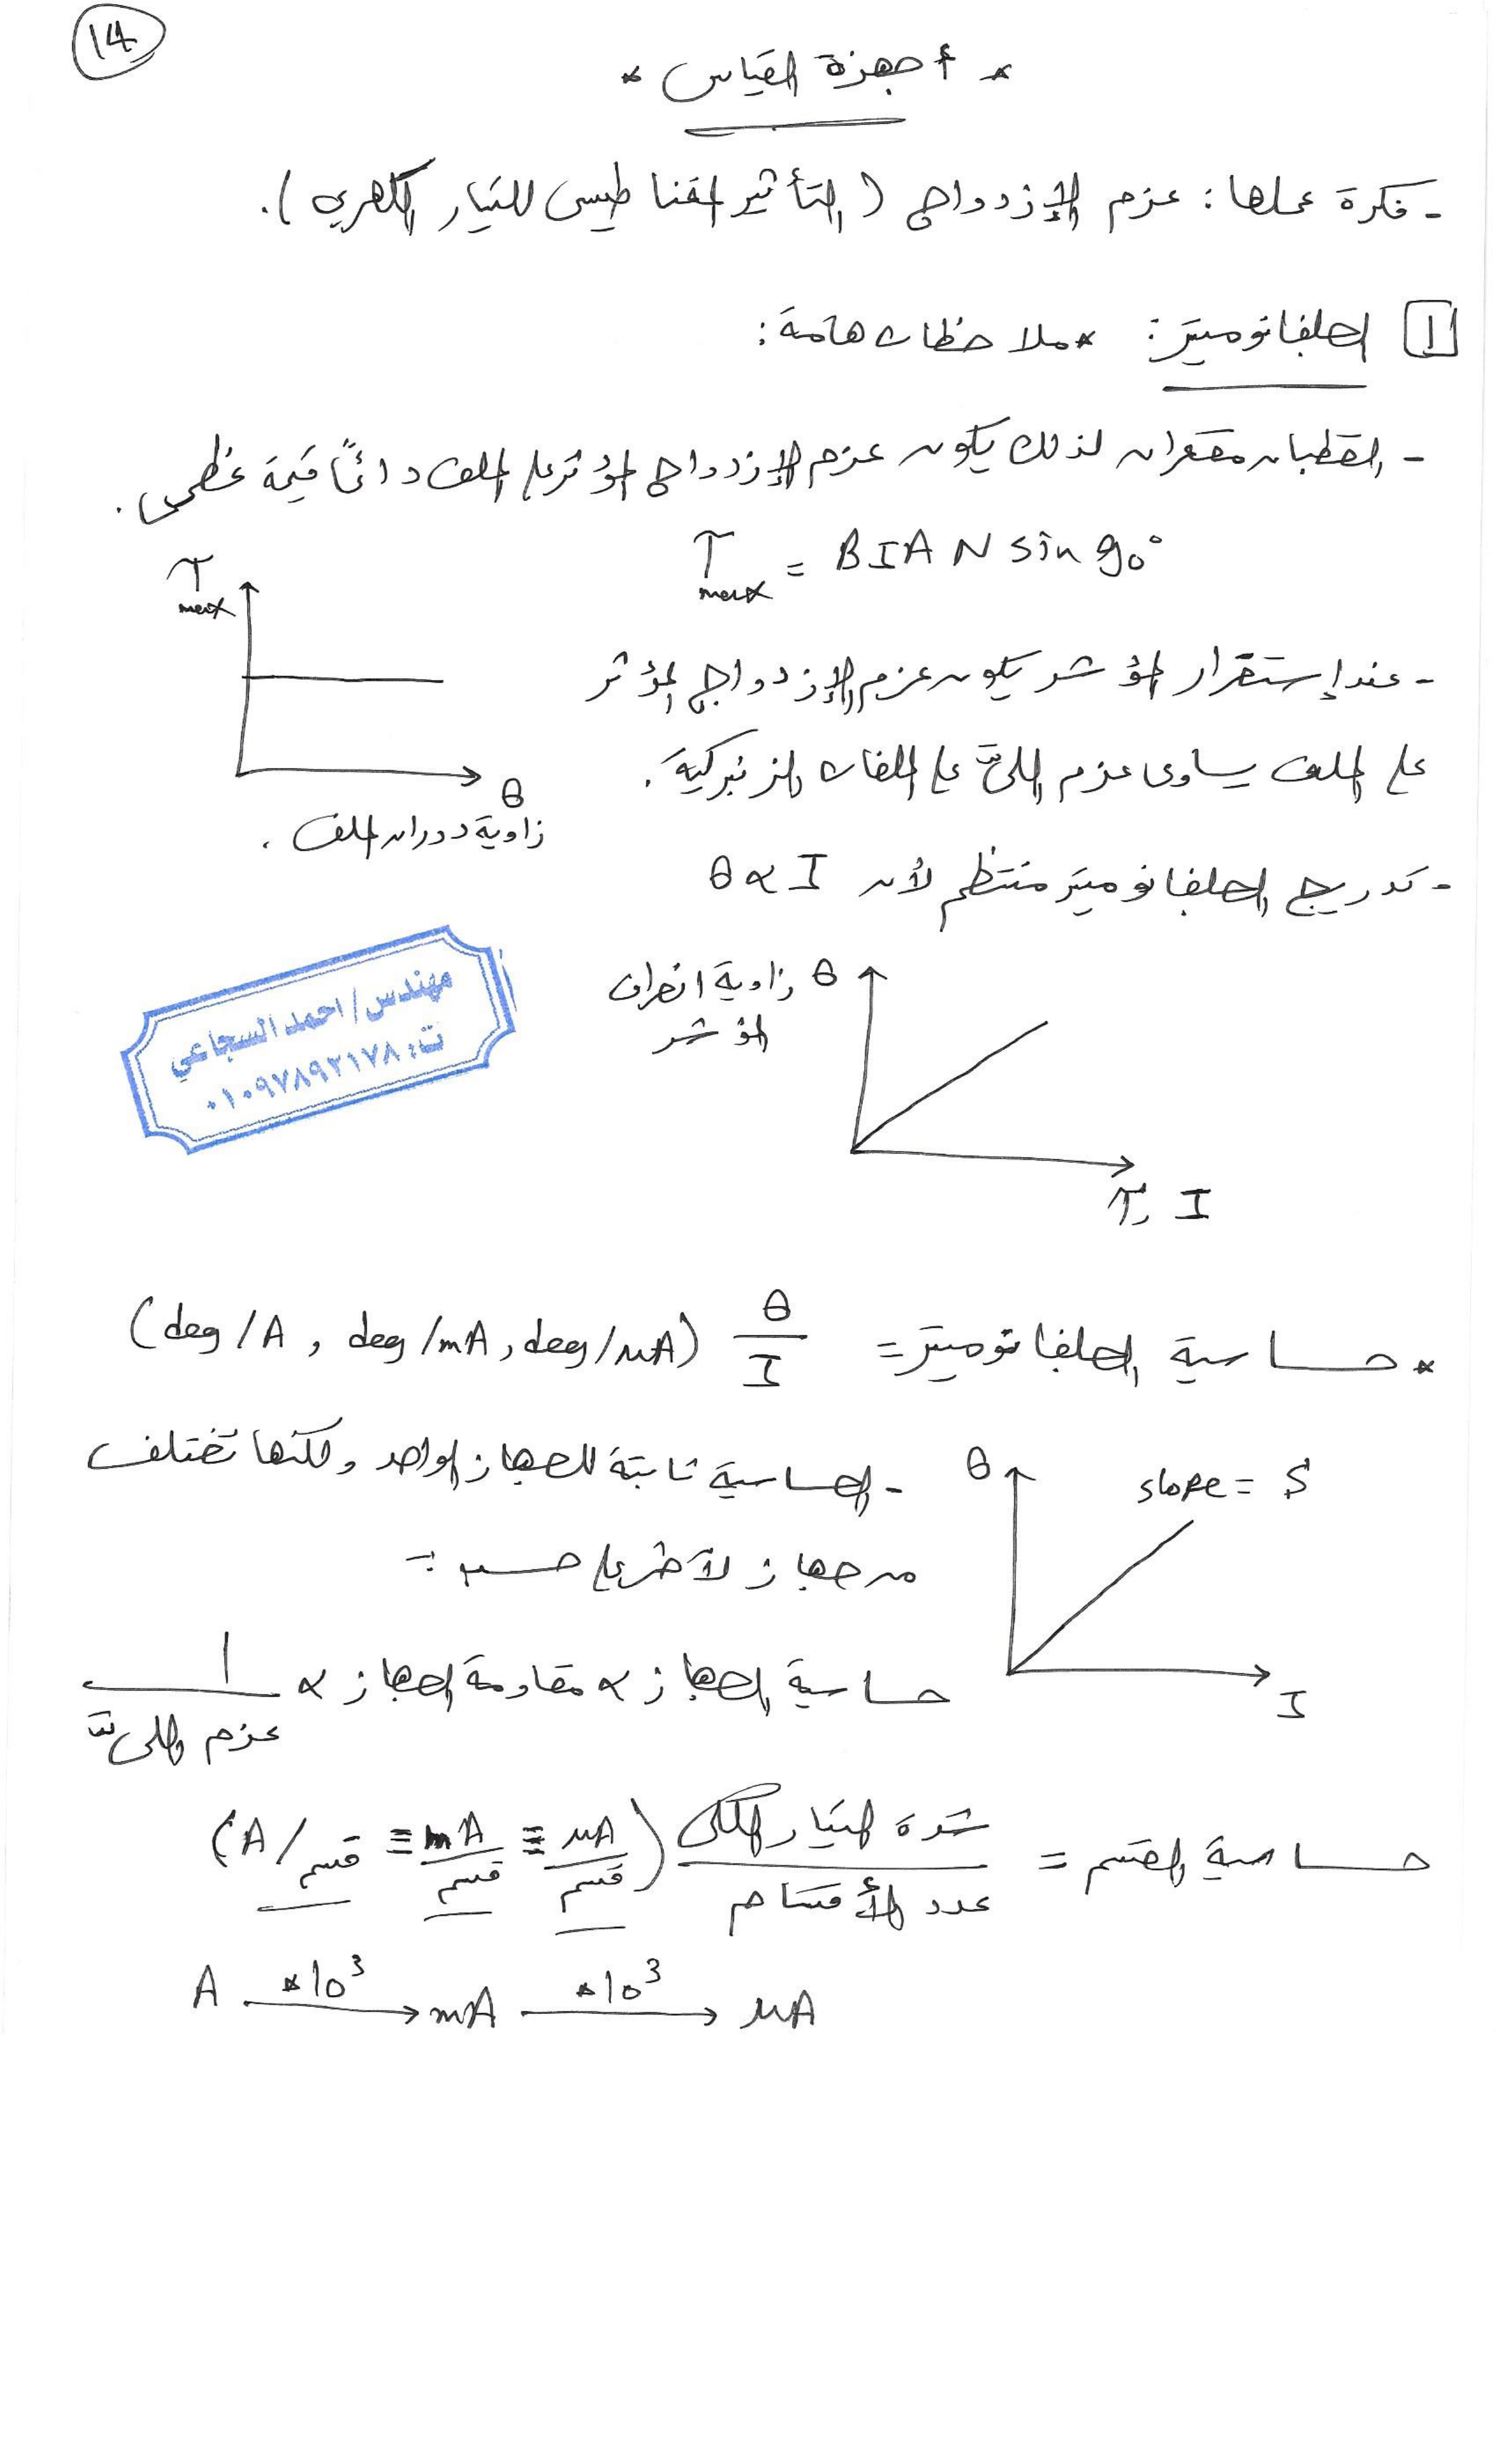 ١٤
* أجهزة القياس *
- فكرة عملها : عزم الإزدواج ( التأثير المغناطيسى للتيار الكهربى ) .
١ الجلفانوميتر : * ملاحظات هامة :
- القطبان مقعران لذلك يكون عزم الإزدواج المؤثر على الملف دائماً قيمة عظمى .
τmax = BIAN sin 90°
τmax
θ
زاوية دوران الملف .
- عند إستقرار المؤشر يكون عزم الإزدواج المؤثر
على الملف يساوى عزم اللىّ على الملفات الزنبركية .
- تدريج الجلفانوميتر منتظم لأن θ ∝ I
θ زاوية انحراف
المؤشر
τ, I
مهندس / احمد السجاعي
ت : ٠١٠٩٧٨٩٢١٧٨
* حساسية الجلفانوميتر = θ/I (deg/A , deg/mA , deg/μA)
θ
slope = S
I
- الحساسية ثابتة للجهاز الواحد ولكنها تختلف
من جهاز لآخر على حسب :-
حساسية الجهاز ∝ مقاومة الجهاز ∝ ١/عزم اللىّ
حساسية القسم = شدة التيار الكلى/عدد الأقسام (μA/قسم ≡ mA/قسم ≡ A/قسم)
A *10³→ mA *10³→ μA